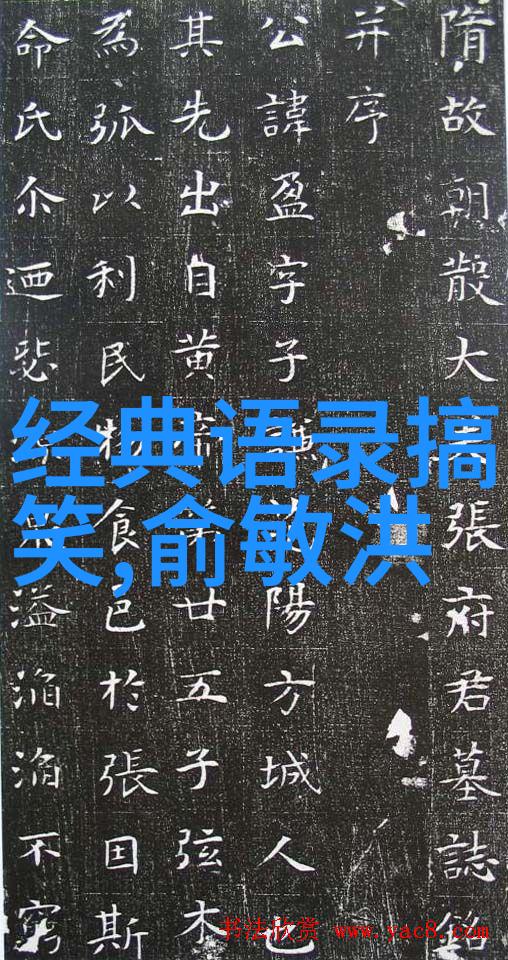 隋故朝散大張府君墓誌銘
并序
公諱盈字子陽方城人也
其先出自黃廿五子弦木
為弧以利民物食邑於張因斯
命氏尒迺溢滔滔不窮
经典语录搞
笑,俞敏洪
书法欣赏 www.yac8.com